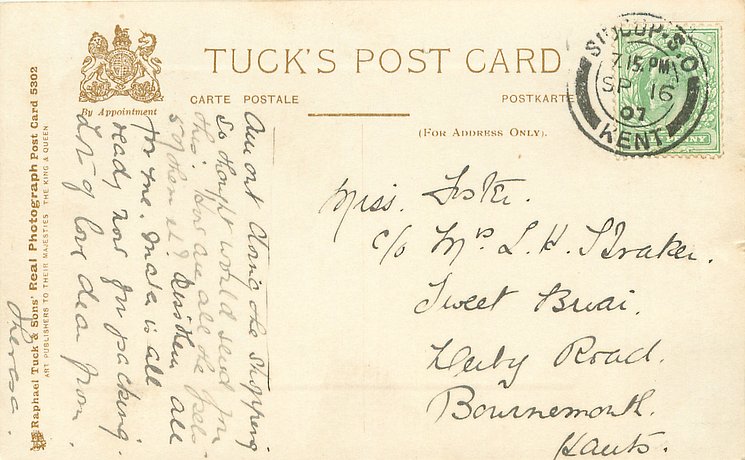 TUCK'S POST CARD
By Appointment
CARTE POSTALE
POSTKARTE
(FOR ADDRESS ONLY).
SIDCUP·S.O
7.15.PM
SP 16
07
KENT
PENNY
Raphael Tuck & Sons' Real Photograph Post Card 5302
ART PUBLISHERS TO THEIR MAJESTIES THE KING & QUEEN
Am out doing the shopping
so thought would send you
this. How are all the pets
kiss them all
for me. is all
ready now for packing.
Lots of love dear from
Theresa.
Miss. Foster.
c/o Mrs L. H. Straker.
Sweet Briar.
Derby Road.
Bournemouth.
Hants.